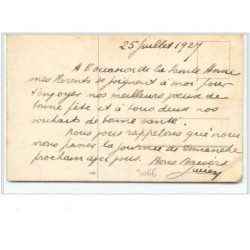 25 Juillet 1927
A l'occasion de la Sainte Anne
mes Parents se joignent à moi pour
t'envoyer nos meilleurs vœux de
bonne fête et à tous deux nos
souhaits de bonne santé.
Nous vous rappelons que nous
vous pour la journée de Dimanche
prochain Bons Baisers
3066